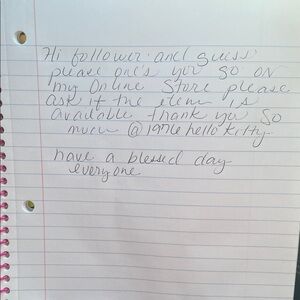 Hi follower and guess
please one's you go on
my Online Store please
ask if the item is
available thank you so
much @1976hellokitty
have a blessed day
everyone